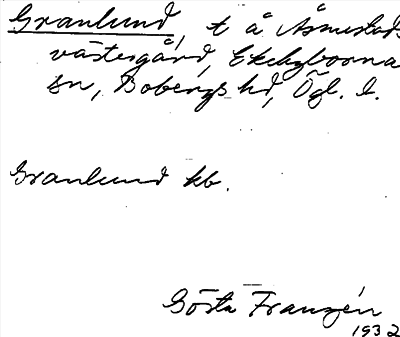 Granlund, t å Åsmestads
västergård, Ekebyborna
sn, Bobergs hd, Ögl. l.
Granlund kb.
Gösta Franzén
1932